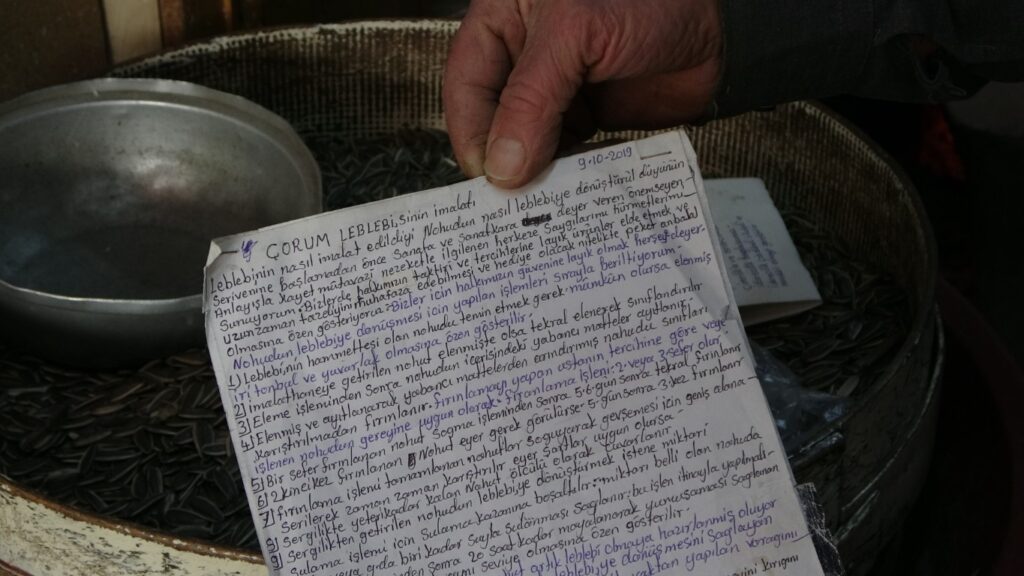 9-10-2019
ÇORUM LEBLEBİSİNİN imalatı
Leblebinin nasıl imalat edildiği Nohudun nasıl leblebiye dönüştürül düyünün
Serüvenine başlamadan önce Sanata ve sanatkara deyer veren önemseyen
Anlayışla kayet mütavazi nezeketle ilgilenen herkere Saygılarımı hürmetlerimi
Sunuyorum. Bizlerde halkımızın taktiri ve tercihlerine layık ürünler elde etmek ve
Uzunzaman tazeliyini muhafaza edebilmesi ve hediye olacak nitelikte peket anbalaj
olmasına özen gösteriyoruz. Bizler için halkımızın güvenine layık olmak herşeye deyer.
Nohudun leblebiye dönüşmesi için yapılan işlemleri sırayla berilttiyorum.
1) Leblebinin hammettesi olan nohudu temin etmek gerek. mümkün olursa elenmiş
iri tonbal ve yuvarlak olmasına özen gösterilir.
2) imalathaneye getirilen nohut elenmişte olsa tekral elenerek sınıflandırılır
3) Eleme işleminden Sonra nohudun içerisindeki yabancı matteler ayıtlanır.
4) Elenmiş ve ayıtlanarak yabancı mattelerden arındırmış nohudu sınıfları
karıştırılmadan fırınlanır. fırınlamayı yapan ustanın tercihine göre veya
işlenen nohudun gereyine uygun olarak. fırınlama işlemi: 2. veya 3. sefer olar
5) Bir sefer fırınlanan nohut Soğma işleminden sonra 5-6 gün sonra tekrar fırınlanır
6) 2 kincikez fırınlanan Nohut eyer gerek görülürse. 5 gün sonra 3. kez fırınlanır
7) fırınlama işlemi tamamlanan nohutlar Soğuyarak gevşemesi için geniş alana
Serilerek zaman zaman karıştırılır eyer şartlar uygun olursa.
8) Sergilikte yeteri kadar kalan Nohut ölçülü olarak çuvarlanır.
9) Sergilikten getirilen nohudun leblebiye dönüştürmek istene miktarı
Sulama işlemi için Sulama kazanına boşaltılır. miktarı belli olan nohuda
gıda biri kadar Sayla Suyunması Sağlanır. bu işlem ihtinayla yapılmalı.
sonra 20 saat kadar mayalanarak yumuşaması Sağlanan
seviye olmasına özen gösterilir.
artık leblebi olmaya hazırlanmış oluyor
leblebiye dönüşmesini Sağlayan
yapılan